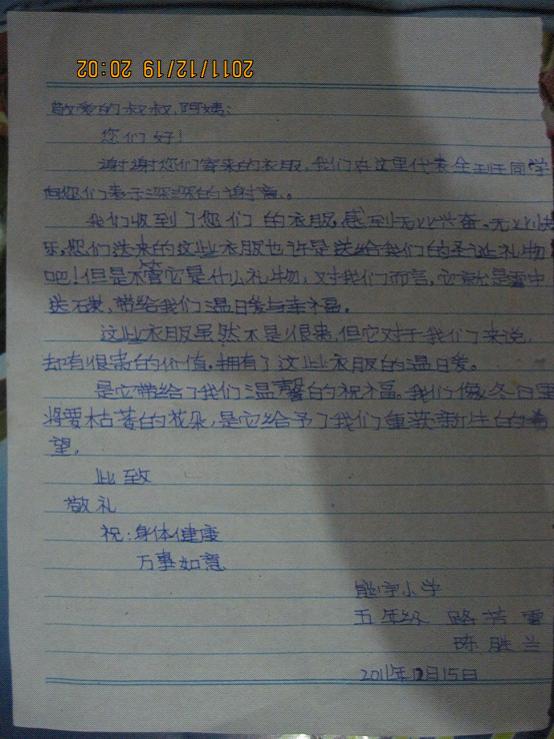 2011/12/19 20:02
敬爱的叔叔,阿姨:
您们好!
谢谢您们寄来的衣服,我们在这里代表全班同学
向您们表示深深的谢意。
我们收到了您们的衣服,感到无比兴奋,无比快
乐,您们送来的这些衣服也许是送给我们的圣诞礼物
吧!但是不管它是什么礼物,对我们而言,它就是雪中
送碳,带给我们温暖与幸福。
这些衣服虽然不是很贵,但它对于我们来说,
却有很贵的价值,拥有了这些衣服的温暖。
是它带给了我们温馨的祝福。我们像冬日里
将要枯萎的花朵,是它给予了我们重获新生的希
望。
此致
敬礼
祝:身体健康
万事如意
小学
五年级 路芳雪
陈胜兰
2011年12月15日